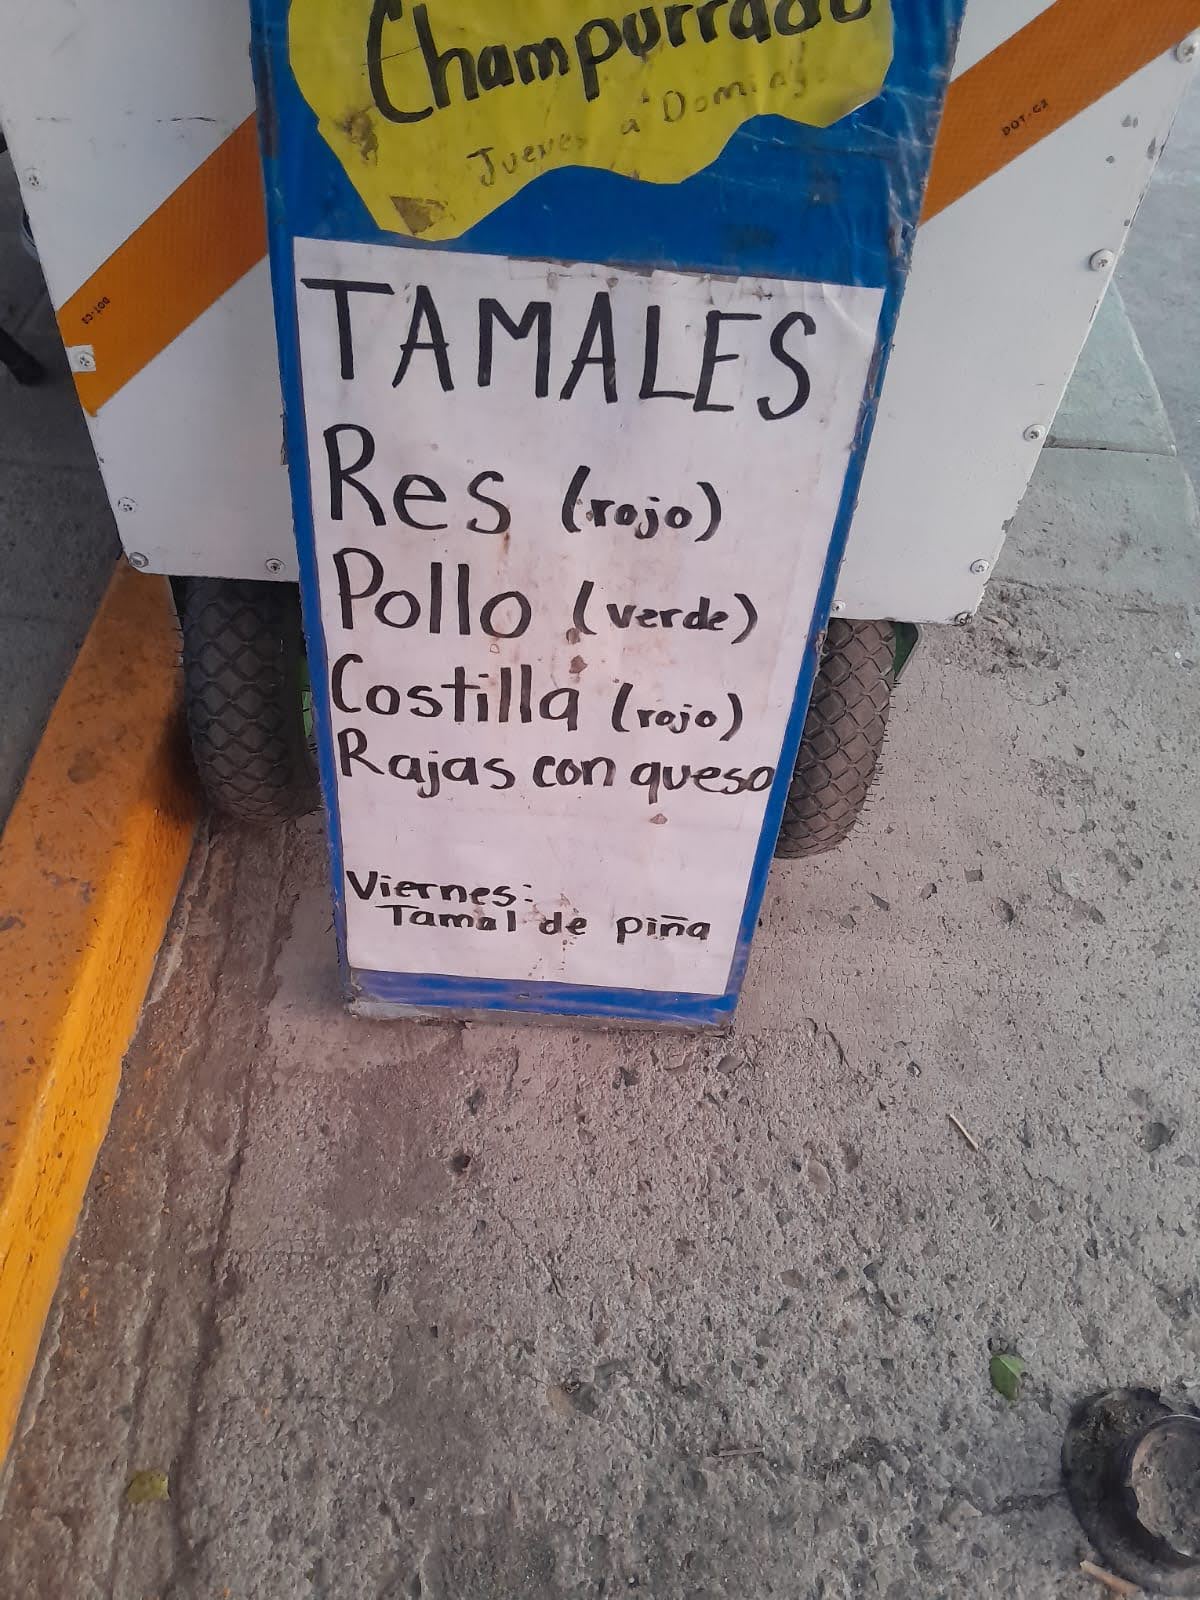 Champurrado
Jueves a Domingo
DOT-C2
DOT-C2
TAMALES
Res (rojo)
Pollo (verde)
Costilla (rojo)
Rajas con queso
Viernes:
Tamal de piña